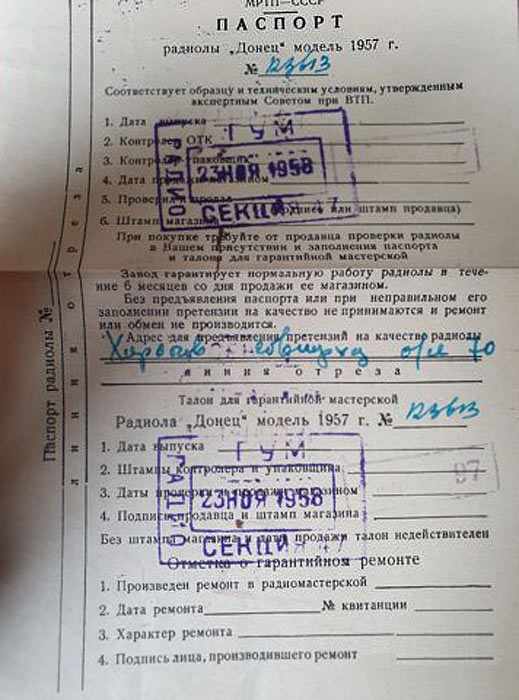 МРТП—СССР
ПАСПОРТ
радиолы „Донец" модель 1957 г.
№
Соответствует образцу и техническим условиям, утвержденным
экспертным Советом при ВТП.
1. Дата выпуска
2. Контролер ОТК
3. Контролер упаковщик
4. Дата продажи магазином
5. Проверил и продал
(подпись или штамп продавца)
6. Штамп магазина
ГУМ
РАДИО
23 НОЯ 1958
СЕКЦИЯ 47
При покупке требуйте от продавца проверки радиолы
в Вашем присутствии и заполнения паспорта
и талона для гарантийной мастерской
Завод гарантирует нормальную работу радиолы в тече-
ние 6 месяцев со дня продажи ее магазином.
Без предъявления паспорта или при неправильном его
заполнении претензии на качество не принимаются и ремонт
или обмен не производится.
Адрес для предъявления претензий на качество радиолы
70
линия отреза
Талон для гарантийной мастерской
Радиола „Донец" модель 1957 г. №
1. Дата выпуска
2. Штампы контролера и упаковщика
3. Даты проверки и продажи магазином
4. Подпись продавца и штамп магазина
ГУМ
РАДИО
23 НОЯ 1958
СЕКЦИЯ 47
97
Без штампа магазина и даты продажи талон недействителен
Отметка о гарантийном ремонте
1. Произведен ремонт в радиомастерской
2. Дата ремонта № квитанции
3. Характер ремонта
4. Подпись лица, производившего ремонт
Паспорт радиолы №
линия отреза